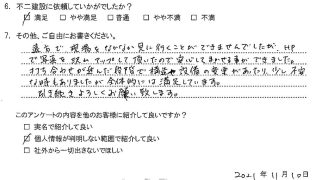 6. 不二建設に依頼していかがでしたか？
☑ 満足 □ やや満足 □ 普通 □ やや不満 □ 不満
7. その他、ご自由にお書きください。
遠方で現場をなかなか見に行くことができませんでしたが、HP
で写真を 頂いて 安心して まかせる事ができました。
打ち合わせが進んだ段階で 設備の変更があったり、少し不安
な時もありましたが全体的には満足しています。
引き続きよろしくお願い致します。
このアンケートの内容を他のお客様に紹介して良いですか？
□ 実名で紹介して良い
☑ 個人情報が判明しない範囲で紹介して良い
□ 社外から一切出さないでほしい
2021年11月10日